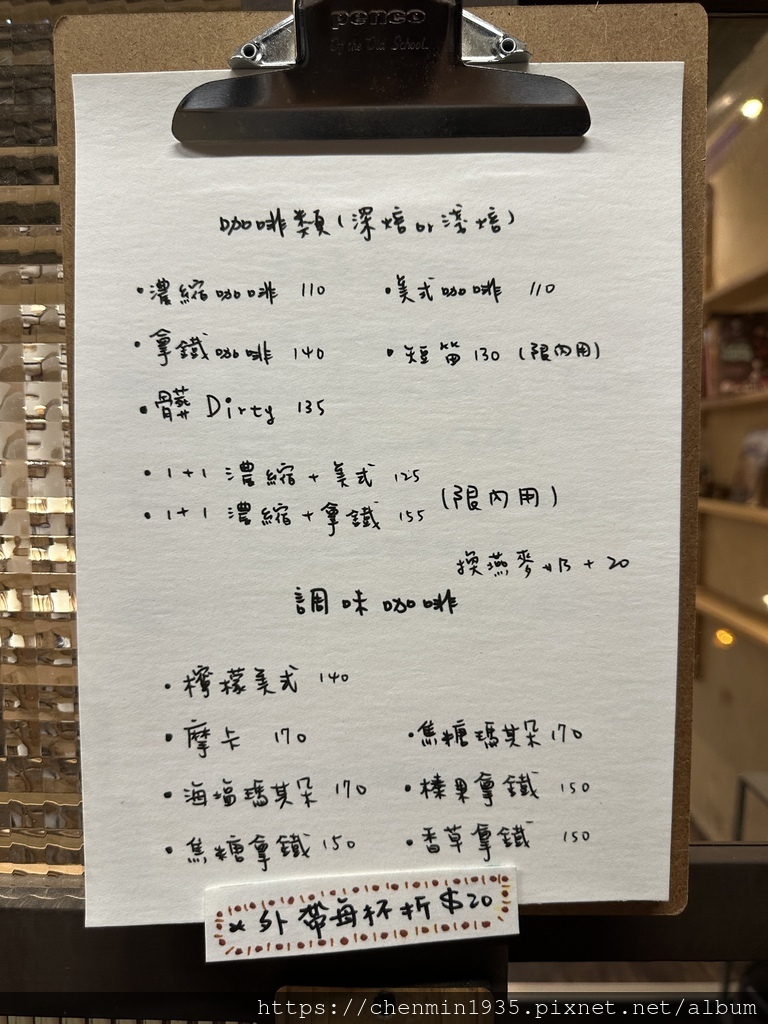 penco
Of the Old School.
咖啡類(深焙or淺焙)
•濃縮咖啡 110 •美式咖啡 110
•拿鐵咖啡 140 •短笛 130 (限內用)
•髒 Dirty 135
•1+1 濃縮+美式 125
•1+1 濃縮+拿鐵 155 (限內用)
換燕麥奶+20
調味咖啡
•檸檬美式 140
•摩卡 170 •焦糖瑪其朵 170
•海塩瑪其朵 170 •榛果拿鐵 150
•焦糖拿鐵 150 •香草拿鐵 150
*外帶每杯折$20
https://chenmin1935.pixnet.net/album